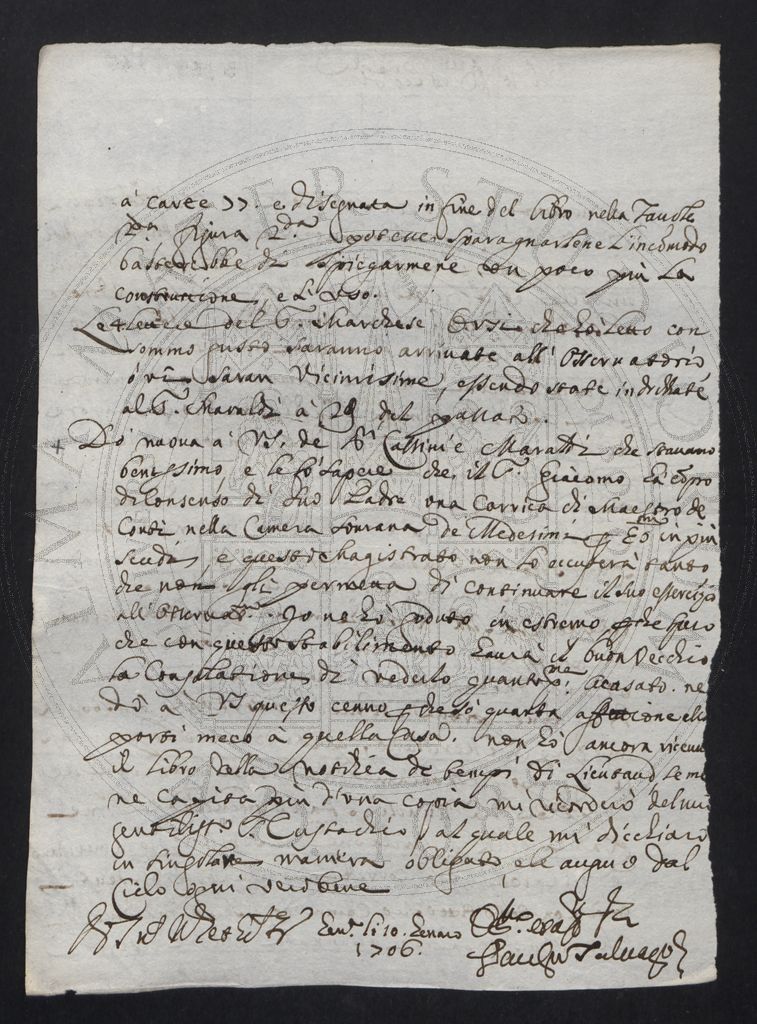 à carte 77. e disegnata in fine del libro nella Tauola
2.a figura 2.da poteua sparagnarsene l'incomodo
basterebbe di spiegarmene un poco più la
construttione, e l'uso.
Le lettere del S. Marchese Orsi che hò letto con
sommo gusto saranno arriuate all'Osseruatorio
ò vi saran vicinissime, essendo state indrizzate
al S. Maraldi à 29 del passato.
+ Dò nuoua à VS. de SS.i Cassini e Maraldi che stauano
benissimo, e le fò sapere che il S. Giacomo hà compro
di consenso di suo Padre una Carrica di Maestro de
Conti nella Camera Sourana de Medesimi
scudi, e questo Magistrato non lo occuperà tanto
che non gli permetta di continuare il suo essercizio
all'Osseruat.o Io ne hò goduto in estremo
che con questo stabilimento haurà il buon Vecchio
la Consolatione di vederlo quanto p.ma acasato. ne
dò à VS questo cenno perche sò quanta affettione ella
porti meco à quella Casa. non hò ancora riceuuto
il libro della notitia de tempi di Lieutaud se me
ne capita più d'una copia mi ricorderò del mio
gentiliss.o S. Eustachio, al quale mi dicchiaro
in singolare maniera obligato e le auguro dal
Cielo ogni vero bene
Gen.a li 10. Genaro
1706.
Paulo Saluago